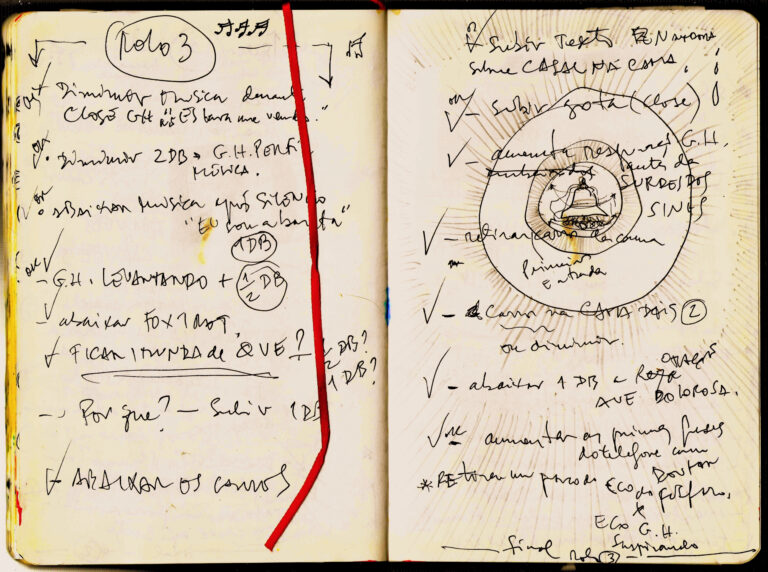 Rolo 3
ok Diminuir música durante
CLOSE GH "Estava me vendo."
ok Diminuir 2DB G.H. PERFIL
MÚSICA.
ok abaixar música após silêncio
"Eu sou a barata"
1DB
ok - G.H. LEVANTANDO + 1/2 DB
- abaixar FOXTROT.
FICAR IMUNDA de QUE? 1/2 DB?
1DB?
- Por que? - Subir 1DB
- ABAIXAR OS CARROS
Subir Texto
sobre CASAL NA CAMA.
ok - subir gota (close)
- aumenta G.H.
antes da
SURDEZ DOS
SINOS
- retirar carro da cama
Primeira
entrada
- Carro na CAMA 2
ou diminuir.
- abaixar 1DB
AVE DOLOROSA.
ok aumentar as primeiras frases
do telefone com
* Retirar um pouco do Eco do fósforo.
*
ECO G.H.
Suspirando
final rolo 3